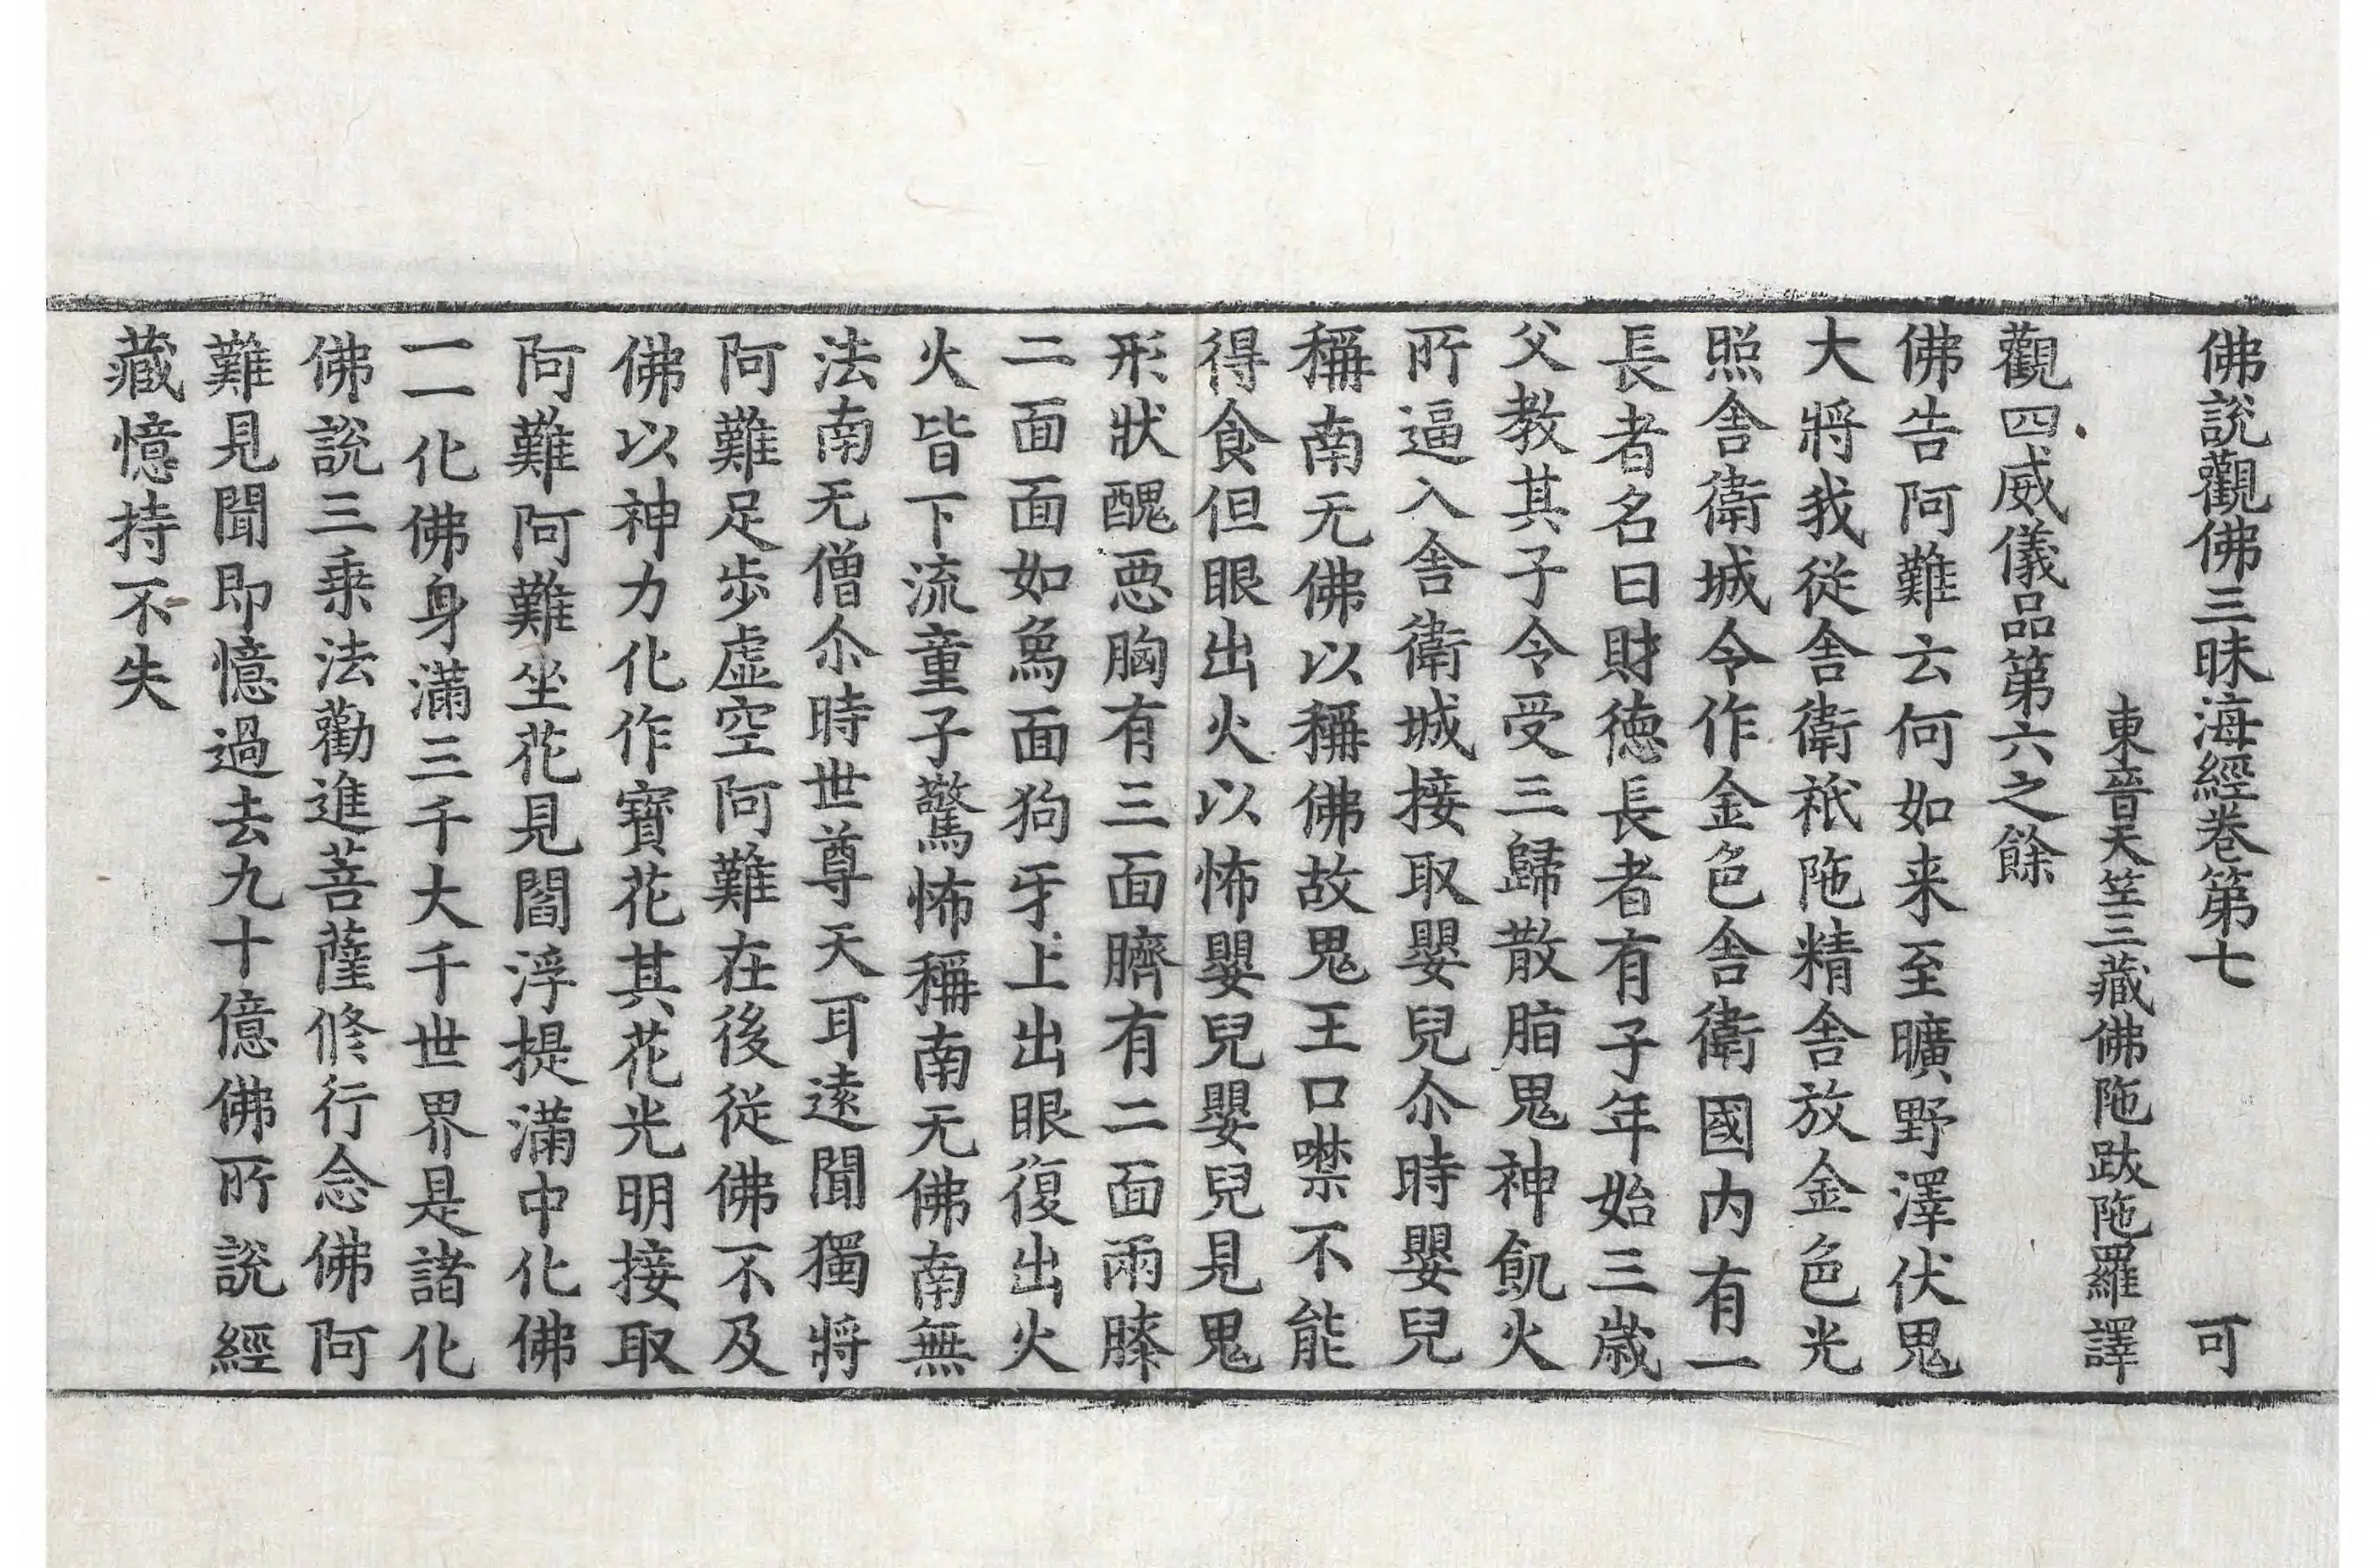 佛說觀佛三昧海經卷第七 可
東晉天竺三藏佛陁跋陁羅譯
觀四威儀品第六之餘
佛告阿難云何如来至曠野澤伏鬼
大將我從舎衛祇陁精舎放金色光
照舎衛城令作金色舎衛國内有一
長者名曰財徳長者有子年始三歳
父教其子令受三歸散脂鬼神飢火
所逼入舎衛城接取嬰兒尒時嬰兒
稱南无佛以稱佛故鬼王口噤不能
得食但眼出火以怖嬰兒嬰兒見鬼
形狀醜惡胸有三面臍有二面兩膝
二面面如鳥面狗牙上出眼復出火
火皆下流童子驚怖稱南无佛南無
法南无僧尒時世尊天耳遠聞獨將
阿難足歩虛空阿難在後從佛不及
佛以神力化作寶花其花光明接取
阿難阿難坐花見閻浮提滿中化佛
一一化佛身滿三千大千世界是諸化
佛說三乗法勸進菩薩修行念佛阿
難見聞即憶過去九十億佛所說經
藏憶持不失